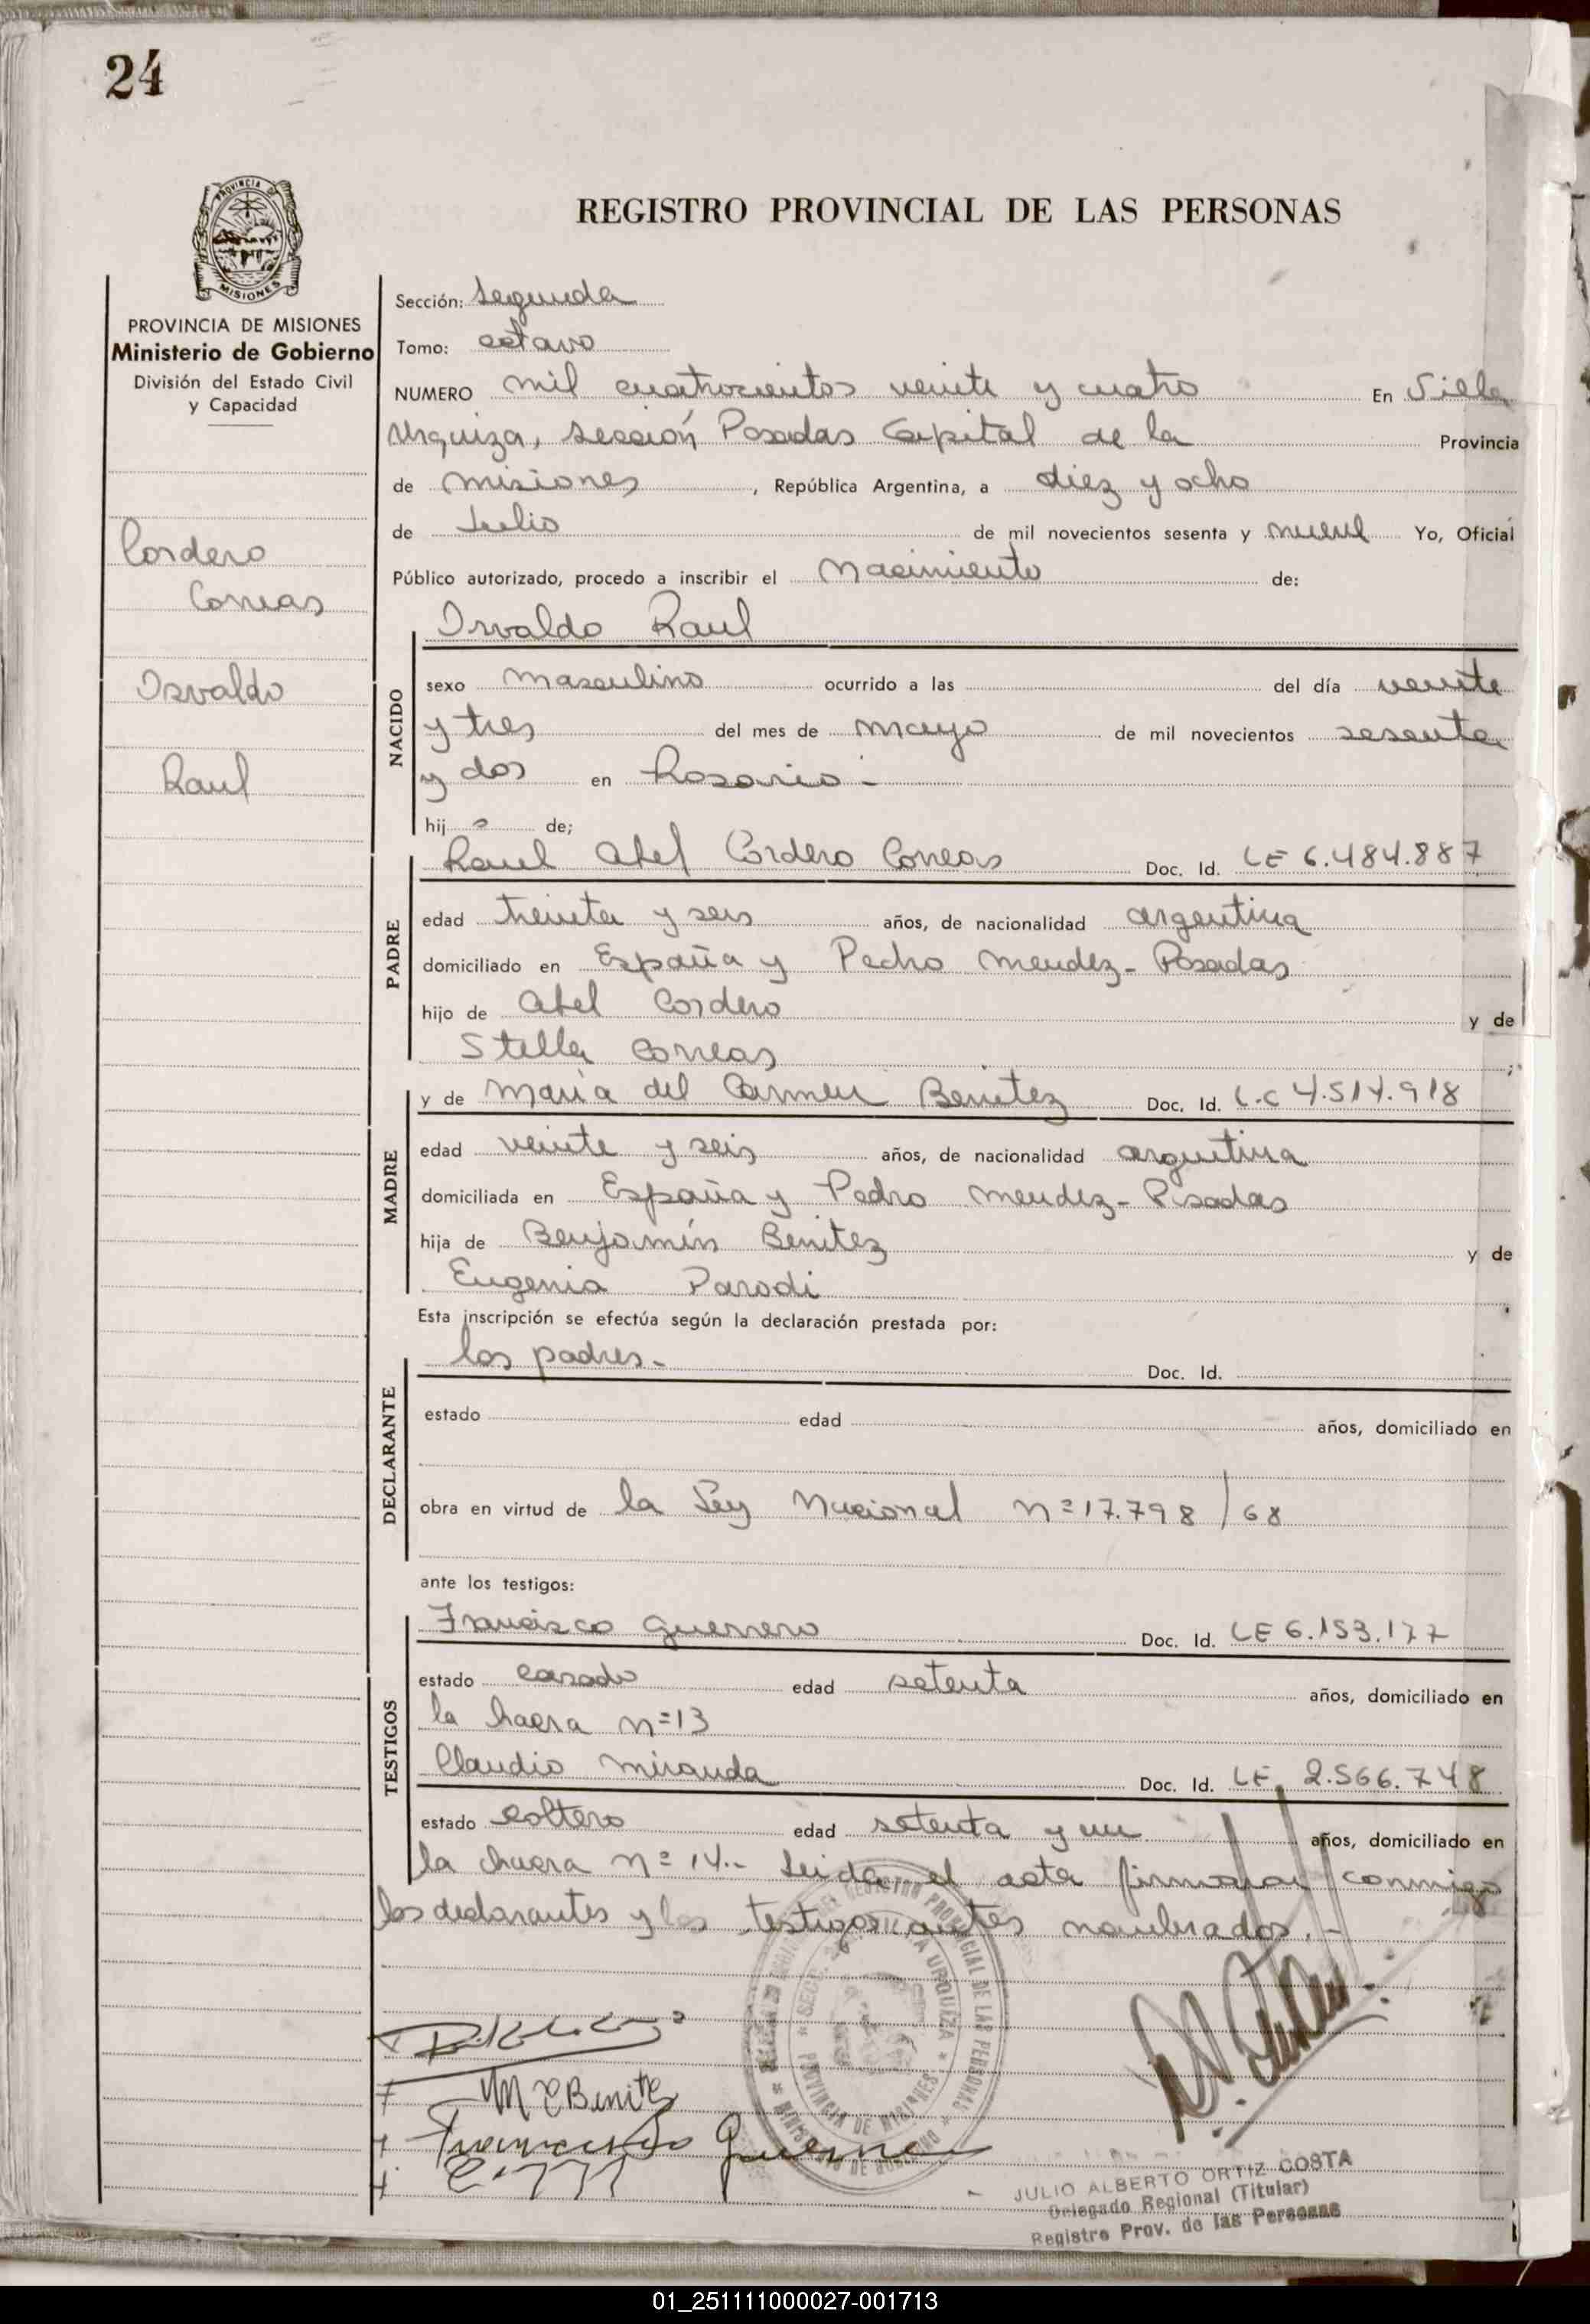 24
PROVINCIA DE
MISIONES
REGISTRO PROVINCIAL DE LAS PERSONAS
PROVINCIA DE MISIONES
Ministerio de Gobierno
División del Estado Civil
y Capacidad
Cordero
Correas
Osvaldo
Raul
Sección: Segunda
Tomo: octavo
NUMERO mil cuatrocientos veinte y cuatro En Villa
Urquiza, sección Posadas Capital de la Provincia
de misiones, República Argentina, a diez y ocho
de Julio de mil novecientos sesenta y nueve Yo, Oficial
Público autorizado, procedo a inscribir el Nacimiento de:
NACIDO
Osvaldo Raul
sexo masculino ocurrido a las del día veinte
y tres del mes de mayo de mil novecientos sesenta
y dos en Rosario -
hijo de;
PADRE
Raul Abel Cordero Correas Doc. Id. LE 6.484.887
edad treinta y seis años, de nacionalidad argentina
domiciliado en España y Pedro Mendez - Posadas
hijo de Abel Cordero y de
Stella Correas ;
MADRE
y de Maria del Carmen Benitez Doc. Id. L.C 4.514.918
edad veinte y seis años, de nacionalidad argentina
domiciliada en España y Pedro Mendez - Posadas
hija de Benjamín Benitez y de
Eugenia Parodi .
Esta inscripción se efectúa según la declaración prestada por:
DECLARANTE
los padres.- Doc. Id.
estado edad años, domiciliado en
obra en virtud de la Ley Nacional nº 17.798/68
ante los testigos:
TESTIGOS
Francisco Guerrero Doc. Id. LE 6.153.177
estado casado edad setenta años, domiciliado en
la hacra nº 13
Claudio Miranda Doc. Id. LE. 2.566.748
estado soltero edad setenta y un años, domiciliado en
la chacra nº 14.- Leida el acta firman conmigo
los declarantes y los testigos antes nombrados.-
M C Benitez
Francisco Guerrero
REGISTRO PROVINCIAL DE LAS PERSONAS
URQUIZA
PROVINCIA DE MISIONES
JULIO ALBERTO ORTIZ COSTA
Delegado Regional (Titular)
Registro Prov. de las Personas
01_251111000027-001713